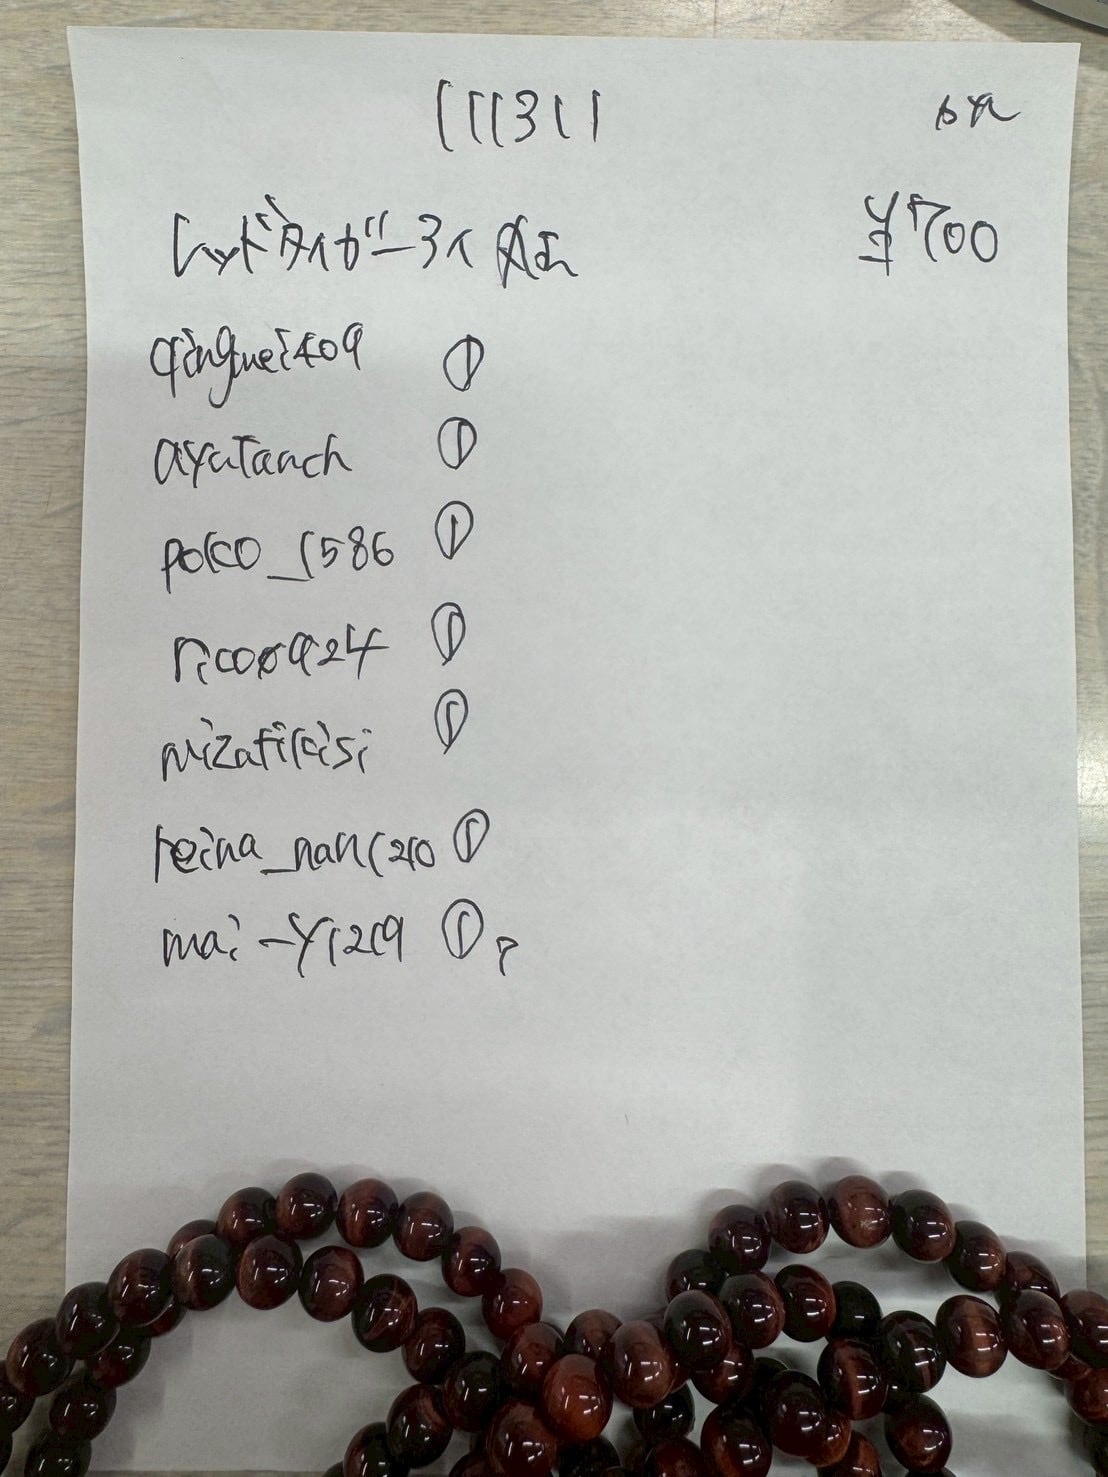 111311
レッドタイガーアイ
¥700
qingwei409 ①
ayutanch ①
poko_1586 ①
ricoo924 ①
mizafikisi ①
reina_nan1210 ①
mai-y1219 ①